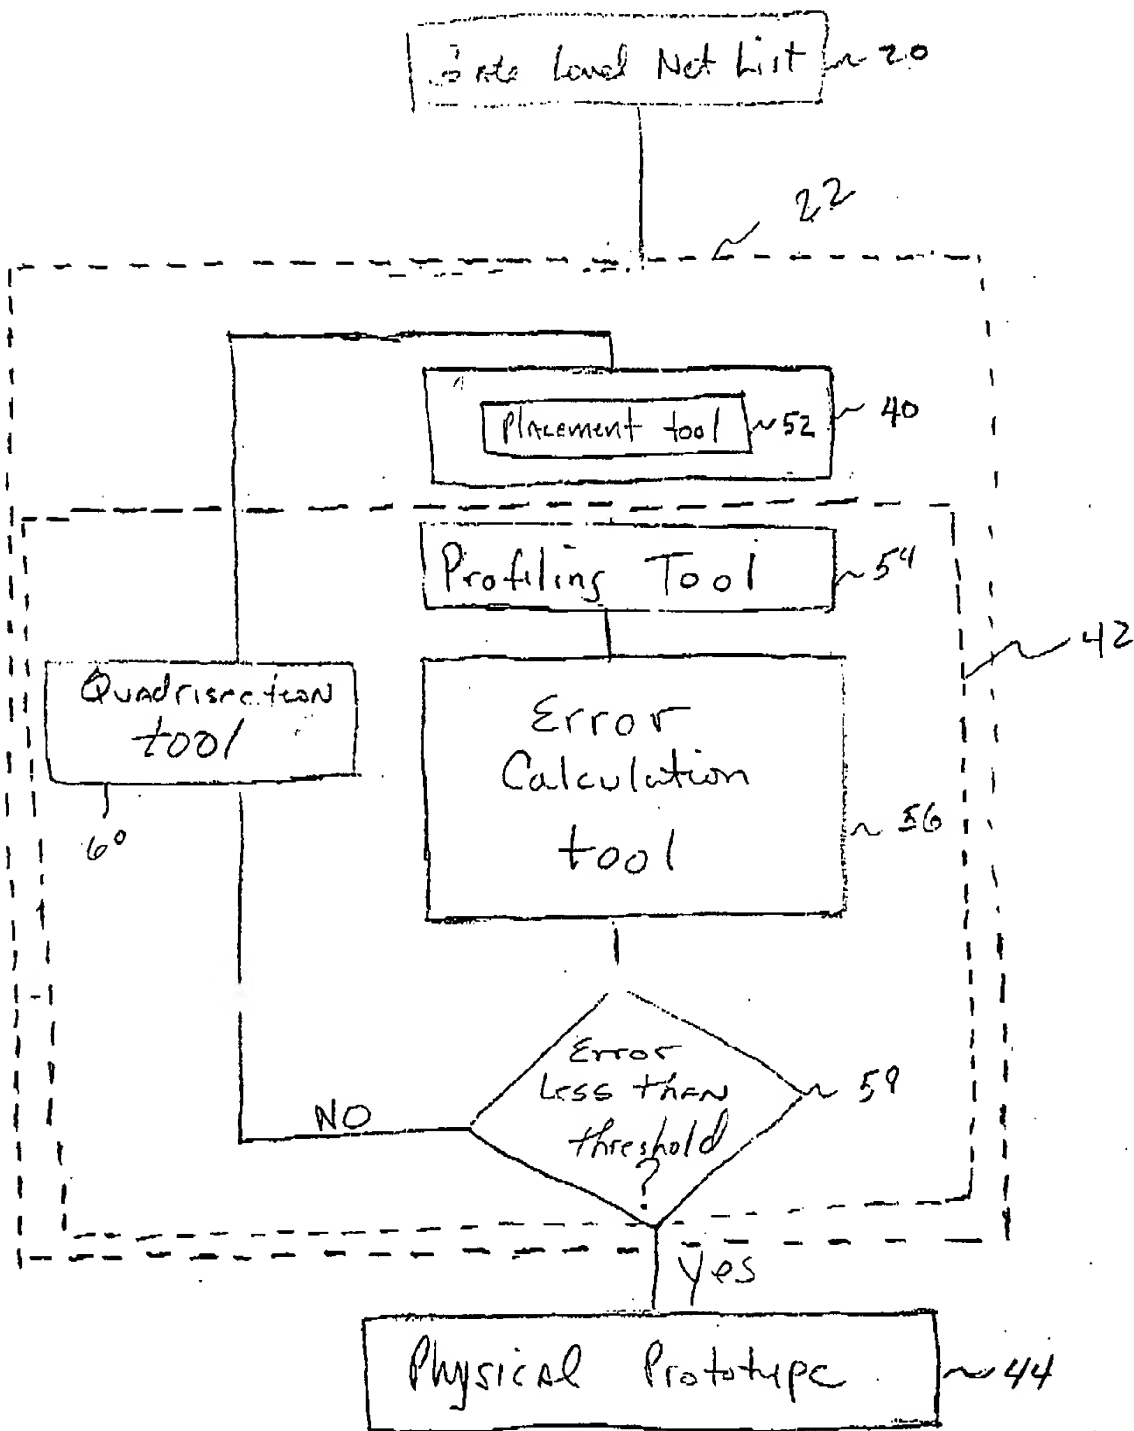 Gate Level Net List 20
22
Placement tool 52 40
Profiling Tool 54
42
Quadrisection
tool
60
Error
Calculation
tool
56
Error
Less than
threshold
?
59
NO
Yes
Physical Prototype 44